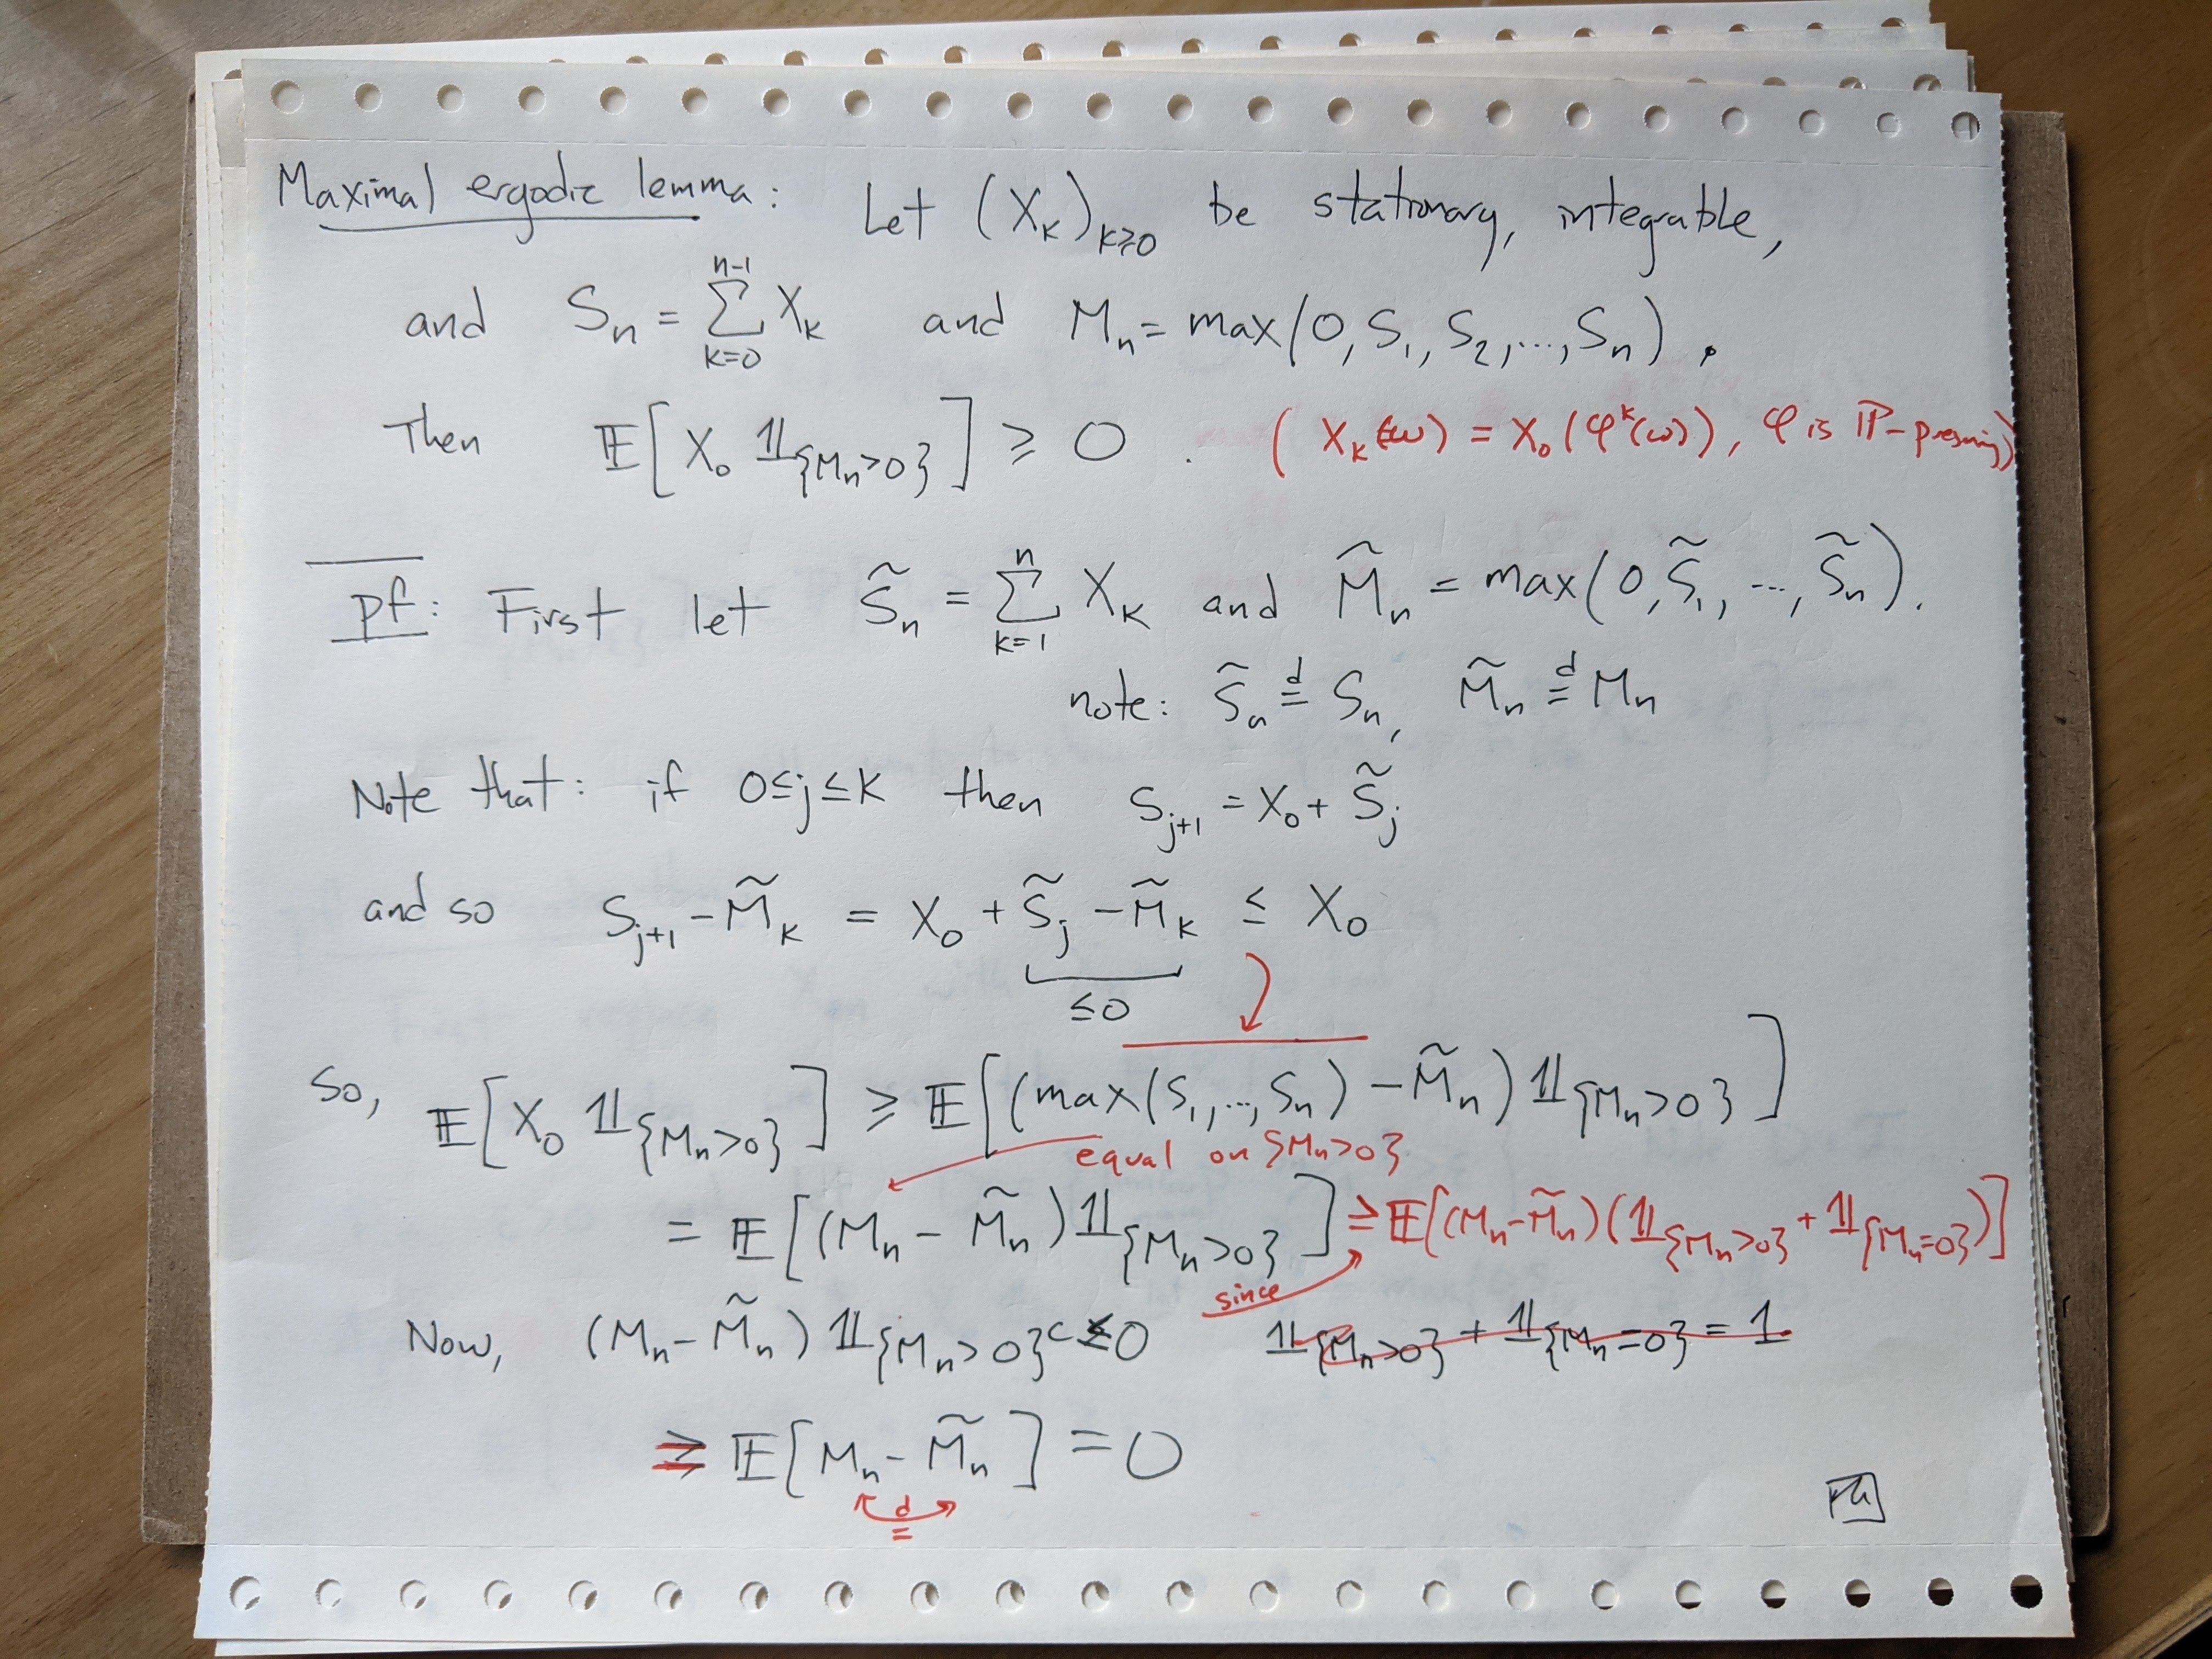 Maximal ergodic lemma: Let (X_k)_{k≥0} be stationary, integrable,
and S_n = ∑_{k=0}^{n-1} X_k and M_n = max(0, S_1, S_2, ..., S_n).
Then 𝔼[X_0 𝟙_{M_n>0}] ≥ 0. (X_k(ω) = X_0(φ^k(ω)), φ is ℙ-preserving)
pf: First let S̃_n = ∑_{k=1}^{n} X_k and M̃_n = max(0, S̃_1, ..., S̃_n).
note: S̃_n =^d S_n, M̃_n =^d M_n
Note that: if 0≤j≤k then S_{j+1} = X_0 + S̃_j
and so S_{j+1} - M̃_k = X_0 + S̃_j - M̃_k ≤ X_0
≤0
So, 𝔼[X_0 𝟙_{M_n>0}] ≥ 𝔼[(max(S_1, ..., S_n) - M̃_n) 𝟙_{M_n>0}]
equal on {M_n>0}
= 𝔼[(M_n - M̃_n) 𝟙_{M_n>0}] ≥ 𝔼[(M_n - M̃_n)(𝟙_{M_n>0} + 𝟙_{M_n=0})]
since
Now, (M_n - M̃_n) 𝟙_{{M_n>0}^c} ≤ 0 𝟙_{M_n>0} + 𝟙_{M_n=0} = 1
≥ 𝔼[M_n - M̃_n] = 0
=^d